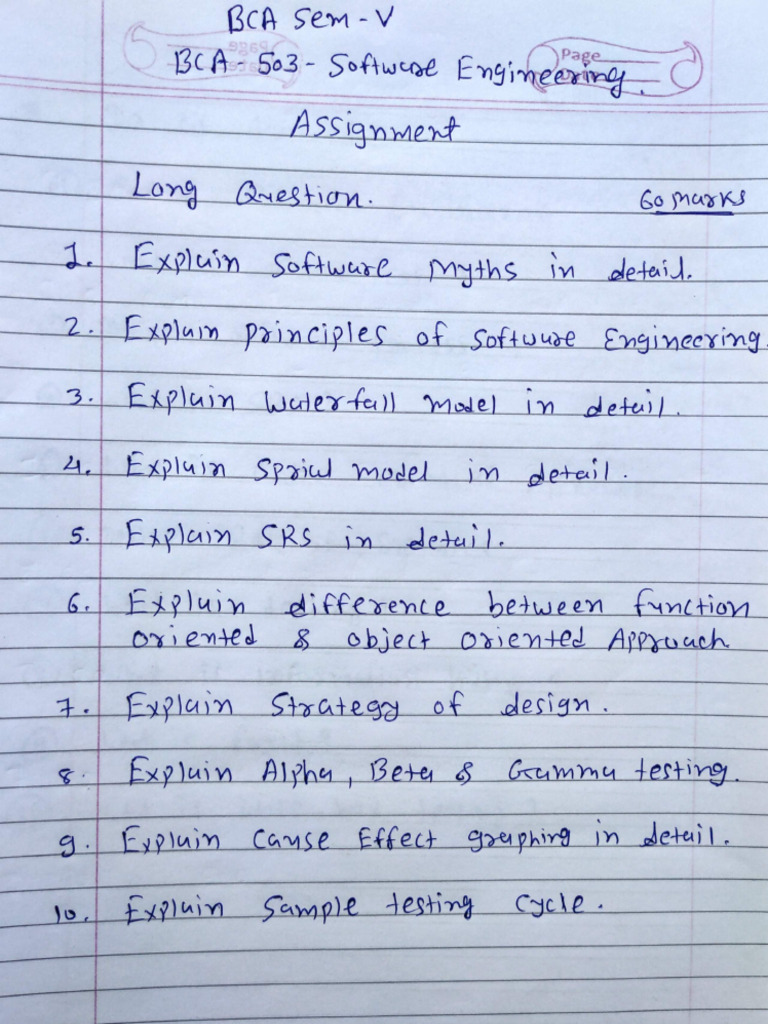 BCA Sem - V
BCA - 503 - Software Engineering.
Page
Assignment
Long Question. 60 Marks
1. Explain Software Myths in detail.
2. Explain principles of Software Engineering.
3. Explain Waterfall Model in detail.
4. Explain Sprial model in detail.
5. Explain SRS in detail.
6. Explain difference between function
oriented & object oriented Approach.
7. Explain Strategy of design.
8. Explain Alpha, Beta & Gamma testing.
9. Explain Cause Effect graphing in detail.
10. Explain Sample testing Cycle.